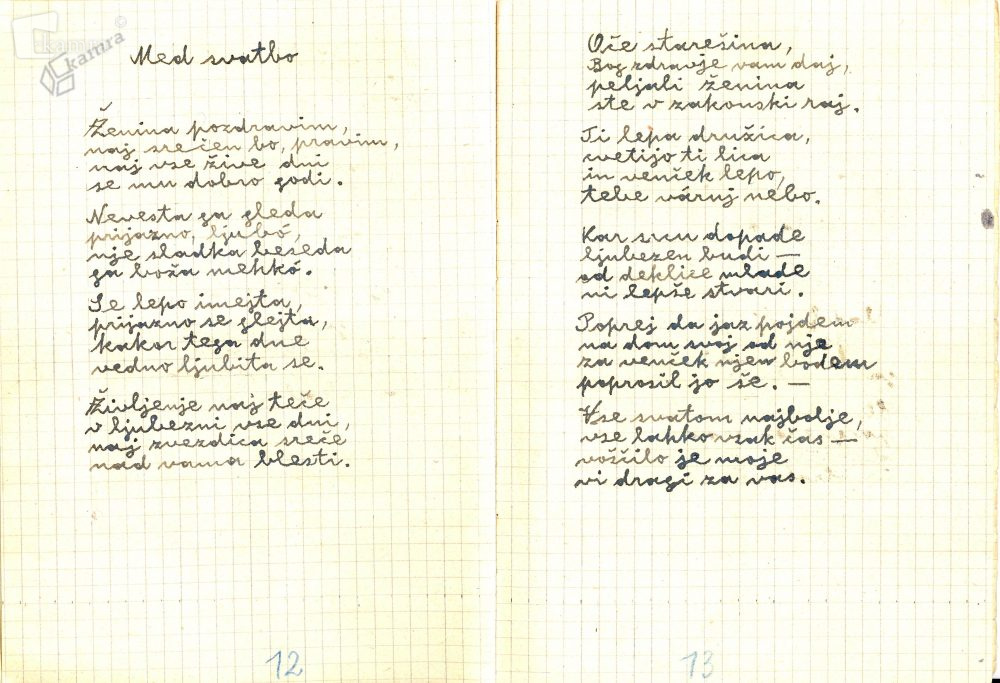 kamra
Med svatbo
Ženina pozdravim,
naj srečen bo, pravim,
naj vse žive dni
se mu dobro godi.
Nevesta ga gleda
prijazno, ljubó,
nje sladka beseda
ga boža mehkó.
Se lepo imejta,
prijazno se glejta,
kakor tega dne
vedno ljubita se.
Življenje naj teče
v ljubezni vse dni,
naj zvezdica sreče
nad vama blesti.
12
Oče starešina,
Bog zdravje vam daj,
peljali ženina
ste v zakonski raj.
Ti lepa družica,
cvetijo ti lica
in venček lepo,
tebe váruj nebo.
Kar srcu dopade
ljubezen budi —
od deklice mlade
ni lepše stvari.
Poprej da jaz pojdem
na dom svoj od nje
za venček njen bodem
poprosil jo še. —
Vse svatom najbolje,
vse lahko vsak čas —
voščilo je moje
vi dragi za vas.
13